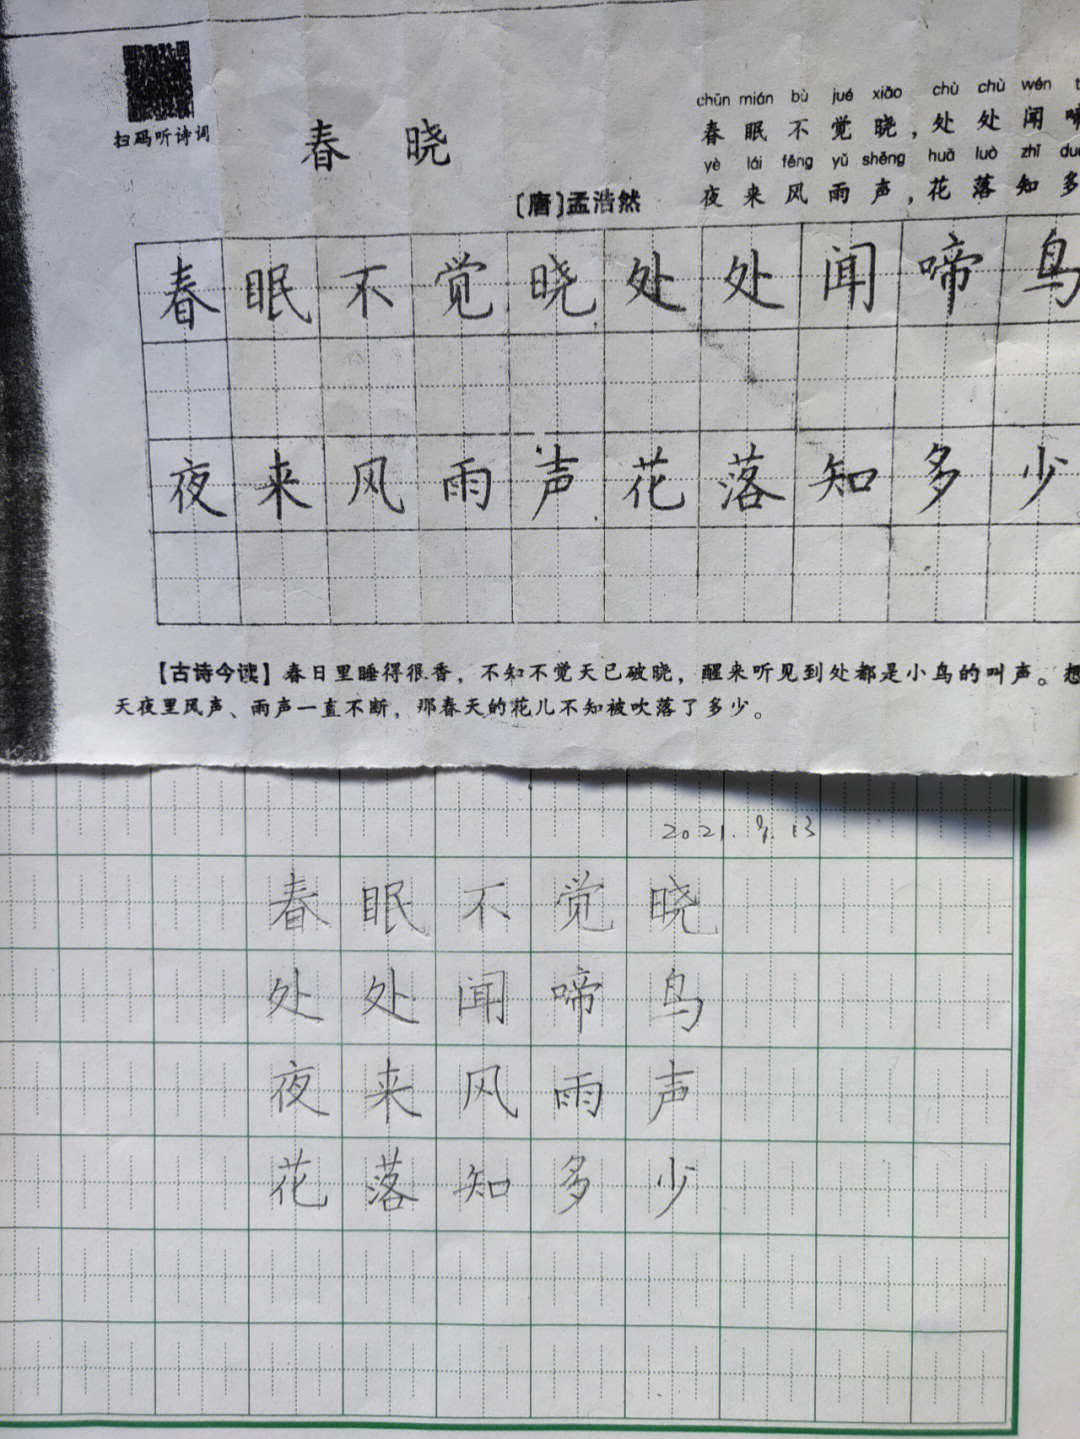 扫码听诗词
春 晓
[唐]孟浩然
chūn mián bù jué xiǎo chù chù wén
春眠不觉晓,处处闻啼
yè lái fēng yǔ shēng huā luò zhī
夜来风雨声,花落知多
春眠不觉晓处处闻啼鸟
夜来风雨声花落知多少
【古诗今读】春日里睡得很香，不知不觉天已破晓，醒来听见到处都是小鸟的叫声。想
天夜里风声、雨声一直不断，那春天的花儿不知被吹落了多少。
2021. 9. 13
春眠不觉晓
处处闻啼鸟
夜来风雨声
花落知多少